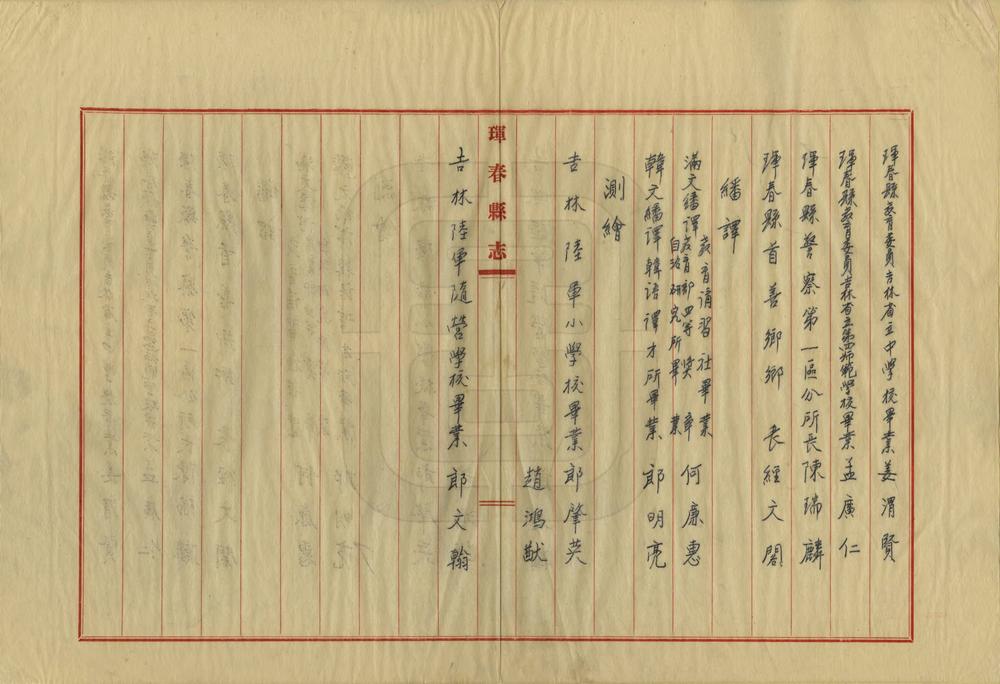 琿春縣教育委員吉林省立中學校畢業姜渭賢
琿春縣教育委員吉林省立第四師範學校畢業孟廣仁
琿春縣警察第一區分所長陳瑞麟
琿春縣首善鄉鄉長經文閣
繙譯
滿文繙譯教育講習社畢業教育部四等奬章自治研究所畢業何廉惠
韓文繙譯韓语譯才所畢業郎明亮
測繪
吉林陸軍小學校畢業郎肇英
趙鴻猷
琿春縣志
吉林陸軍隨營學校畢業郎文翰